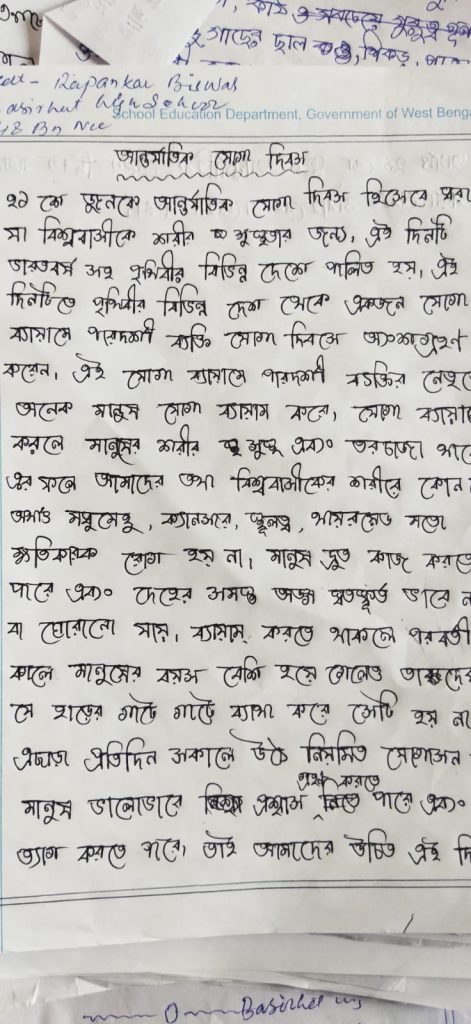 Rapankar Biswas
School Education Department, Government of West Beng
আন্তর্জাতিক যোগা দিবস
২১ শে জুনকে আন্তর্জাতিক যোগা দিবস হিসেবে
বিশ্ববাসীকে শরীর সুস্থতার জন্য, এই দিনটি
ভারতবর্ষ সহ পৃথিবীর বিভিন্ন দেশে পালিত হয়, এই
দিনটিতে পৃথিবীর বিভিন্ন দেশ থেকে একজন যোগা
ব্যায়ামে পারদর্শী ব্যক্তি যোগা দিবসে অংশগ্রহণ
করেন, এই যোগা ব্যায়ামে পারদর্শী ব্যক্তির
অনেক মানুষ যোগা ব্যায়াম করে, যোগা
করলে মানুষের শরীর সুস্থ এবং তরতাজা
এর ফলে আমাদের তথা বিশ্ববাসীকের শরীরে কোন
মধুমেহ, ক্যানসার, স্থূলত্ব, থাইরয়েড মতো
ক্ষতিকারক রোগ হয় না, মানুষ দ্রুত কাজ করতে
পারে এবং দেহের সমস্ত অঙ্গ স্বতস্ফূর্ত ভাবে
বা ঘোরানো যায়, ব্যায়াম করতে থাকলে পরবর্তী
কালে মানুষের বয়স বেশি হয়ে গেলেও
যে হাড়ের গাটে গাটে ব্যাথা করে সেটি হয় না
এছাড়া প্রতিদিন সকালে উঠে নিয়মিত
মানুষ ভালোভাবে প্রশ্বাস গ্রহণ করতে পারে এবং
ত্যাগ করতে পারে, তাই আমাদের উচিত এই
Basirhat